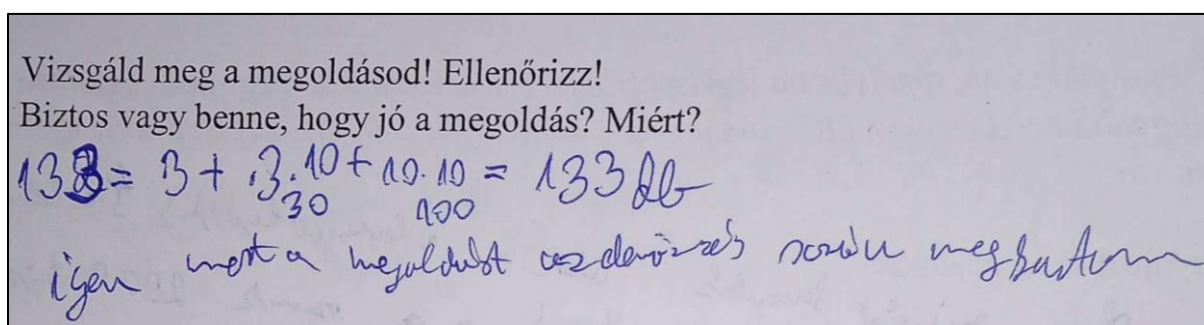 Vizsgáld meg a megoldásod! Ellenőrizz!
Biztos vagy benne, hogy jó a megoldás? Miért?
133 = 3 + 3.10 + 10.10 = 133 db
30 100
igen mert a megoldást az elenőrzés során megkaptam